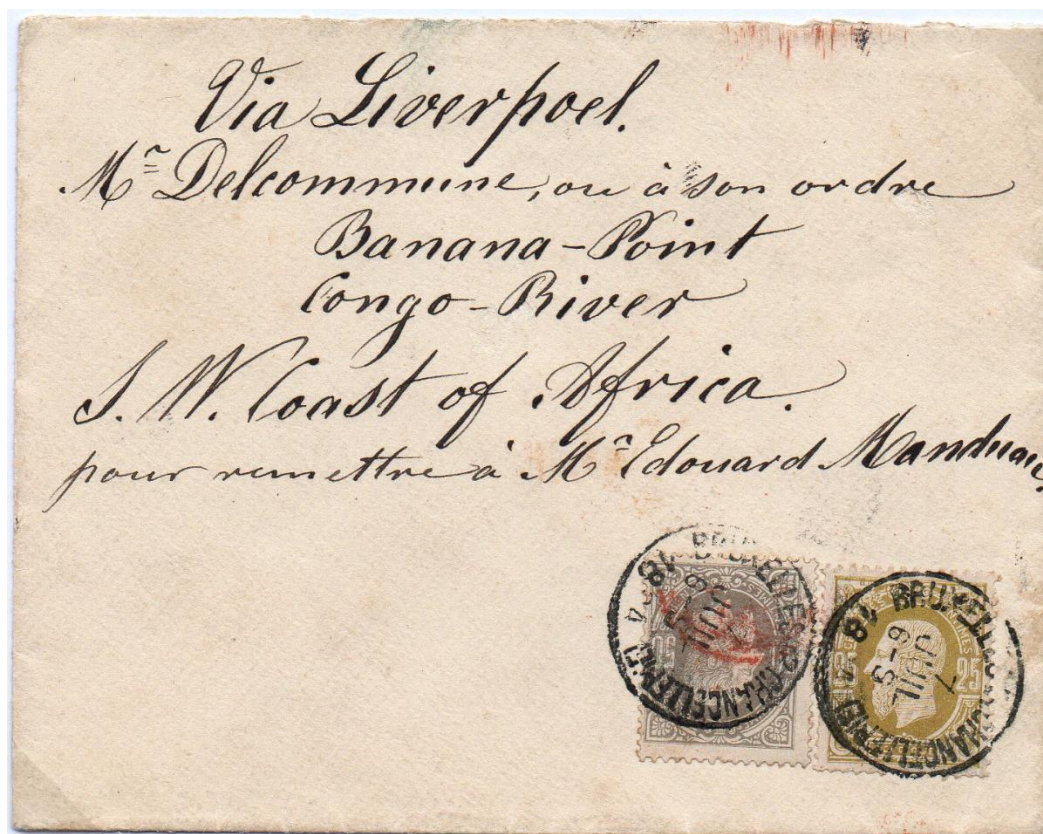 Via Liverpool.
Mr Delcommune, ou à son ordre
Banana-Point
Congo-River
S. W. Coast of Africa.
pour remettre à Mr Edouard Manduau,
BRUXELLES (CHANCELLERIE)
7 JUIL
6-S
18 84
50
BRUXELLES (CHANCELLERIE)
7 JUIL
6-S
18 84
25
25